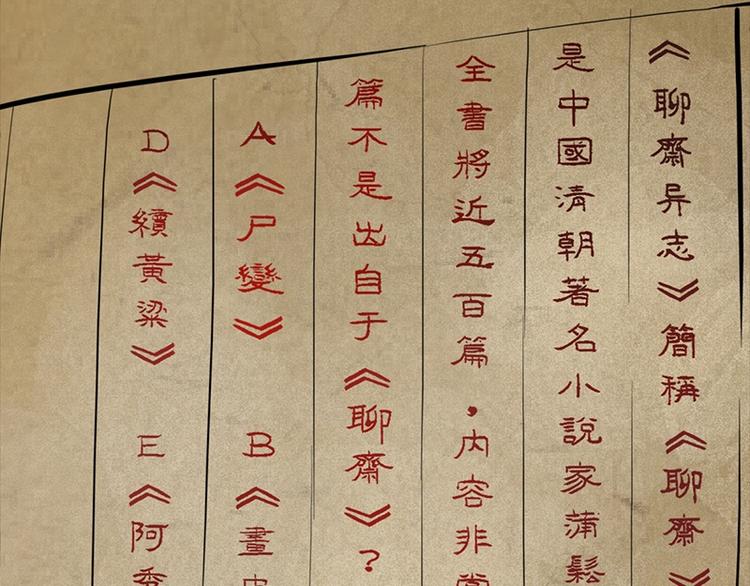 《聊齋异志》簡稱《聊齋》
是中國清朝著名小說家蒲鬆
全書將近五百篇，內容非常
篇不是出自于《聊齋》？
A《尸變》 B《畫
D《續黃粱》 E《阿